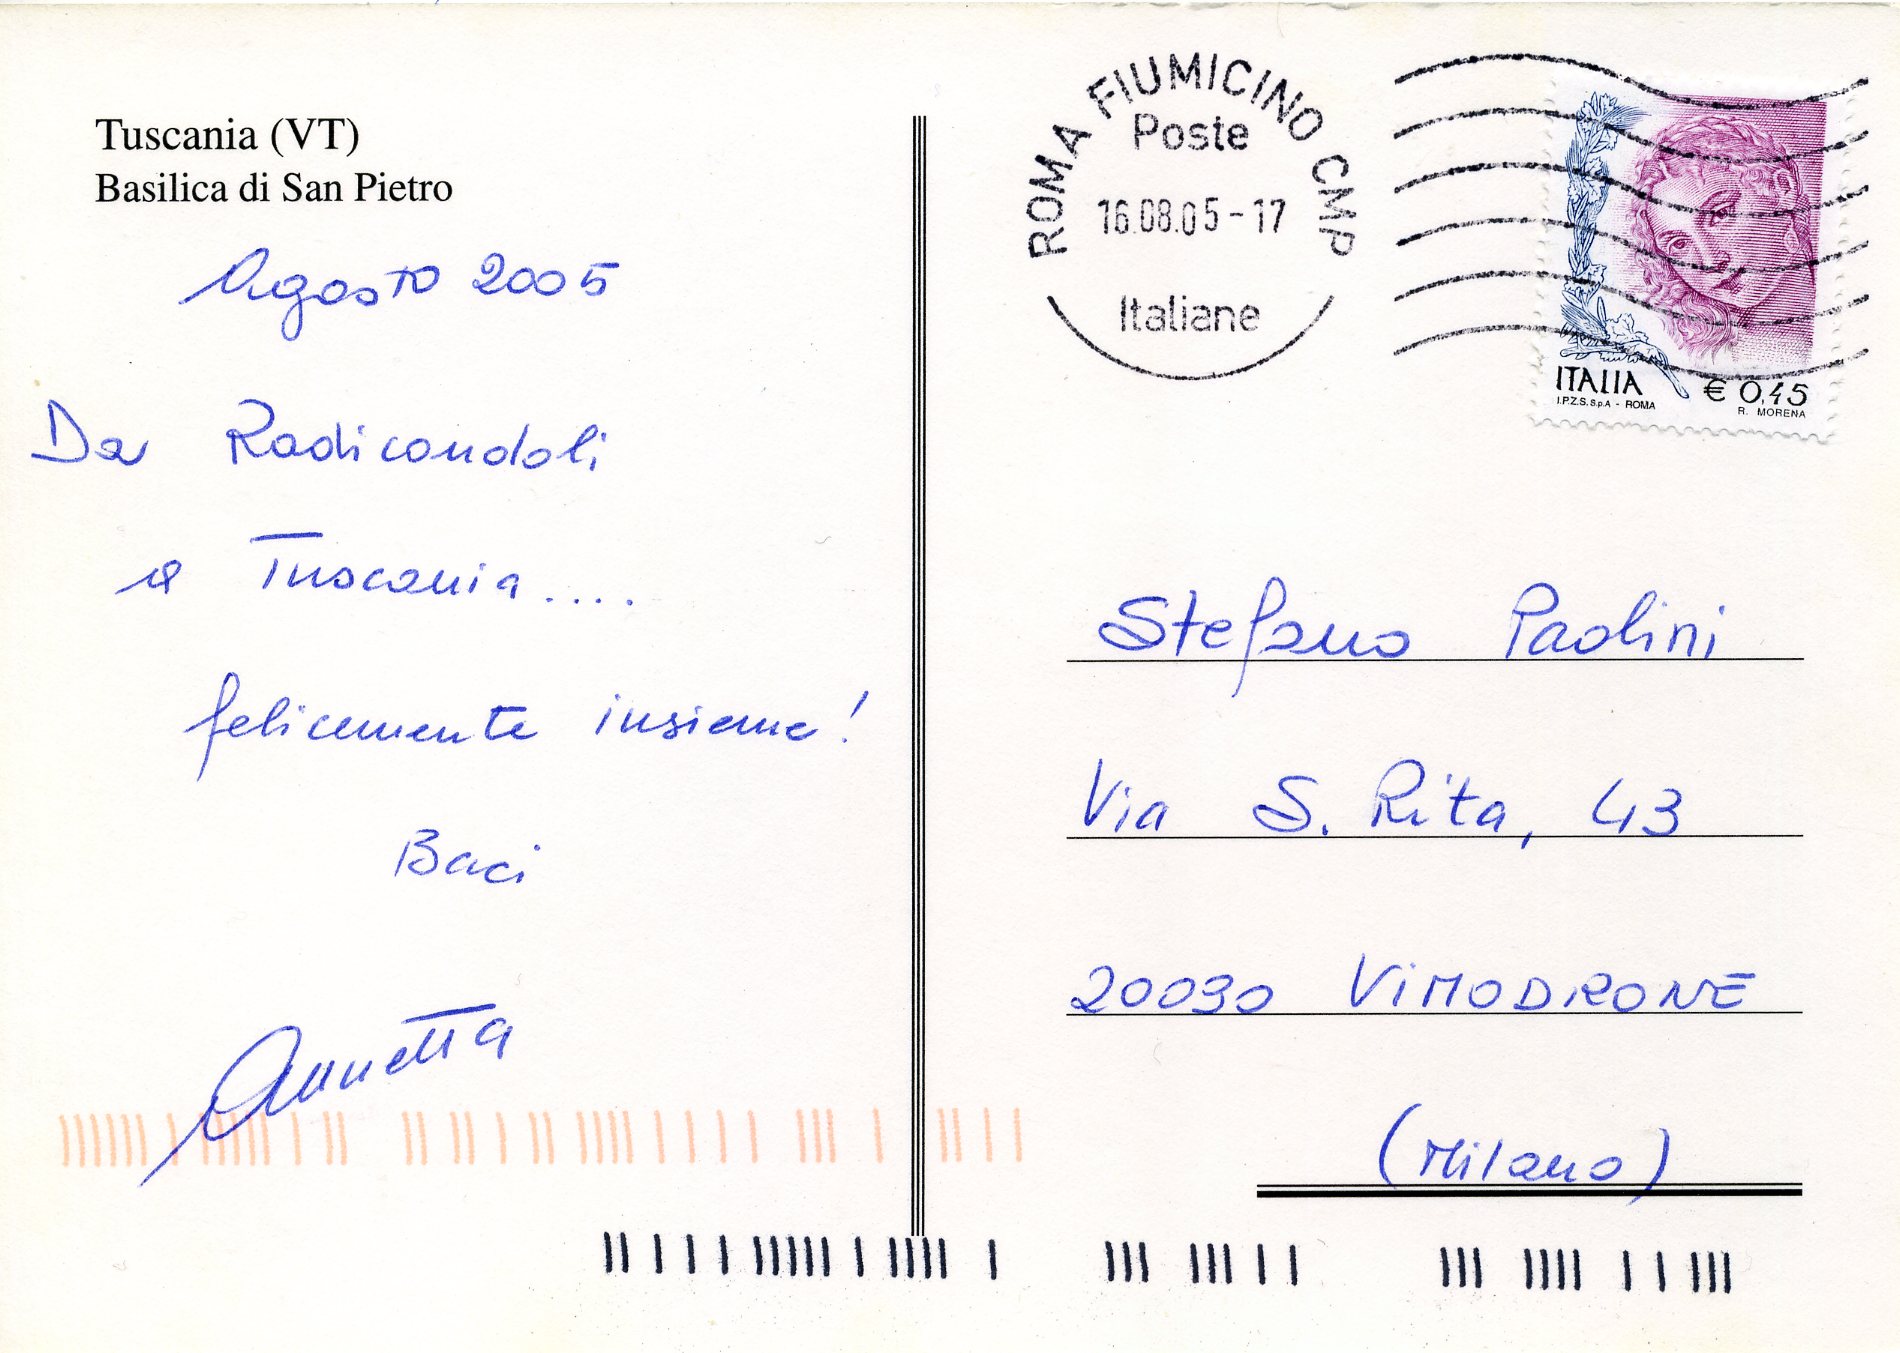 Tuscania (VT)
Basilica di San Pietro
Agosto 2005
Da Radicondoli
a Tuscania....
felicemente insieme!
Baci
Annetta
ROMA FIUMICINO CMP
Poste
16.08.05-17
Italiane
ITALIA
I.P.Z.S. S.p.A - ROMA
€ 0,45
R. MORENA
Stefano Paolini
Via S. Rita, 43
20090 VIMODRONE
(Milano)